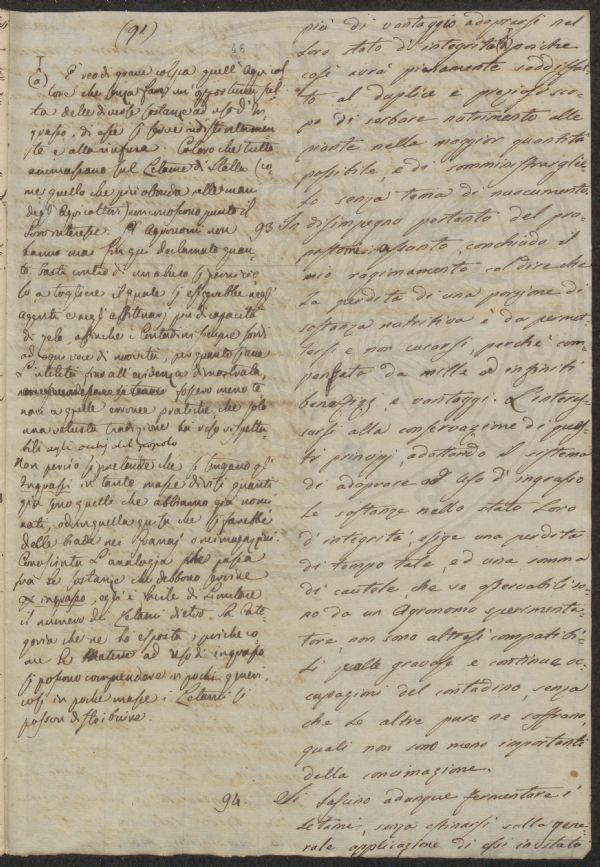 (91)
46
(a) È reo di grave colpa quell' Agricol-
tore che senza fare un' opportuna scel-
ta delle diverse sostanze ad uso d' in-
grasso, di esse si serve indistintamen-
te e alla rinfusa. Coloro che tutto
ammassano sul Letame di Stalla (co-
me quello che più abonda alle mani
degli Agricoltori) non conoscono punto il
loro interesse. Gli Agronomi non
hanno mai fin qui declamato quan-
to basta contro di un abuso sì pernicio-
so a togliere il quale si esigerebbe negli
Agenti e negli affittuarj più di capacità
di zelo, affinchè i Contadini sempre sordi
ad ogni voce di novità, per quanto siane
l' utilità sino all' evidenza dimostrata,
fossero meno te-
naci a quelle erronee pratiche, che solo
una vetusta tradizione ha reso rispetta-
bili agli occhj del popolo
Non perciò si pretende che si tengano gl'
Ingrassi in tante masse divisi quanti
già sono quelli che abbiamo già nomi-
nati, od in quella guisa che si farebbe
delle biade nei Granaj o nei magazzini.
Conosciuta l' analogia che passa
fra le sostanze che debbono servire
d' ingrasso, egli è facile di limitare
il numero dei Letami d' esso. La Cate-
goria che ne ho esposta; poichè co-
me le materie ad uso di ingrasso
si possono comprendere in pochi generi,
così in poche masse i Letami si
posson distribuire.
più di vantaggio adoprarsi nel
loro stato di integrità (a) poichè
così avrà pienamente soddisfat-
to al duplice e prezioso sco-
po di serbare nutrimento alle
piante nella maggior quantità
possibile, e di somministrarglie-
lo senza tema di nuocimento.
93 In disimpegno pertanto del pro-
postomi assunto, conchiudo il
mio ragionamento col dire che
la perdita di una porzione di
sostanza nutritiva è da permet-
tersi e non curarsi, perchè com-
pensata da mille ed infiniti
benefizj e vantaggi. L' interes-
sarsi alla conservazione di que-
ti principj, adottando il sistema
di adoprare ad uso d' ingrasso
le sostanze nello stato loro
d' integrità, esige una perdita
di tempo tale, ed una somma
di cautele che se osservabili so-
no da un Agronomo sperimenta-
tore, non sono altresì compatibi-
li colle gravose e continue oc-
cupazioni del contadino, senza
che le altre pure ne soffrano,
quali non sono meno importanti
della concimazione.
94 Si lascino adunque fermentare i
Letami, senza ostinarsi sulla gene-
rale applicazione di essi in istato